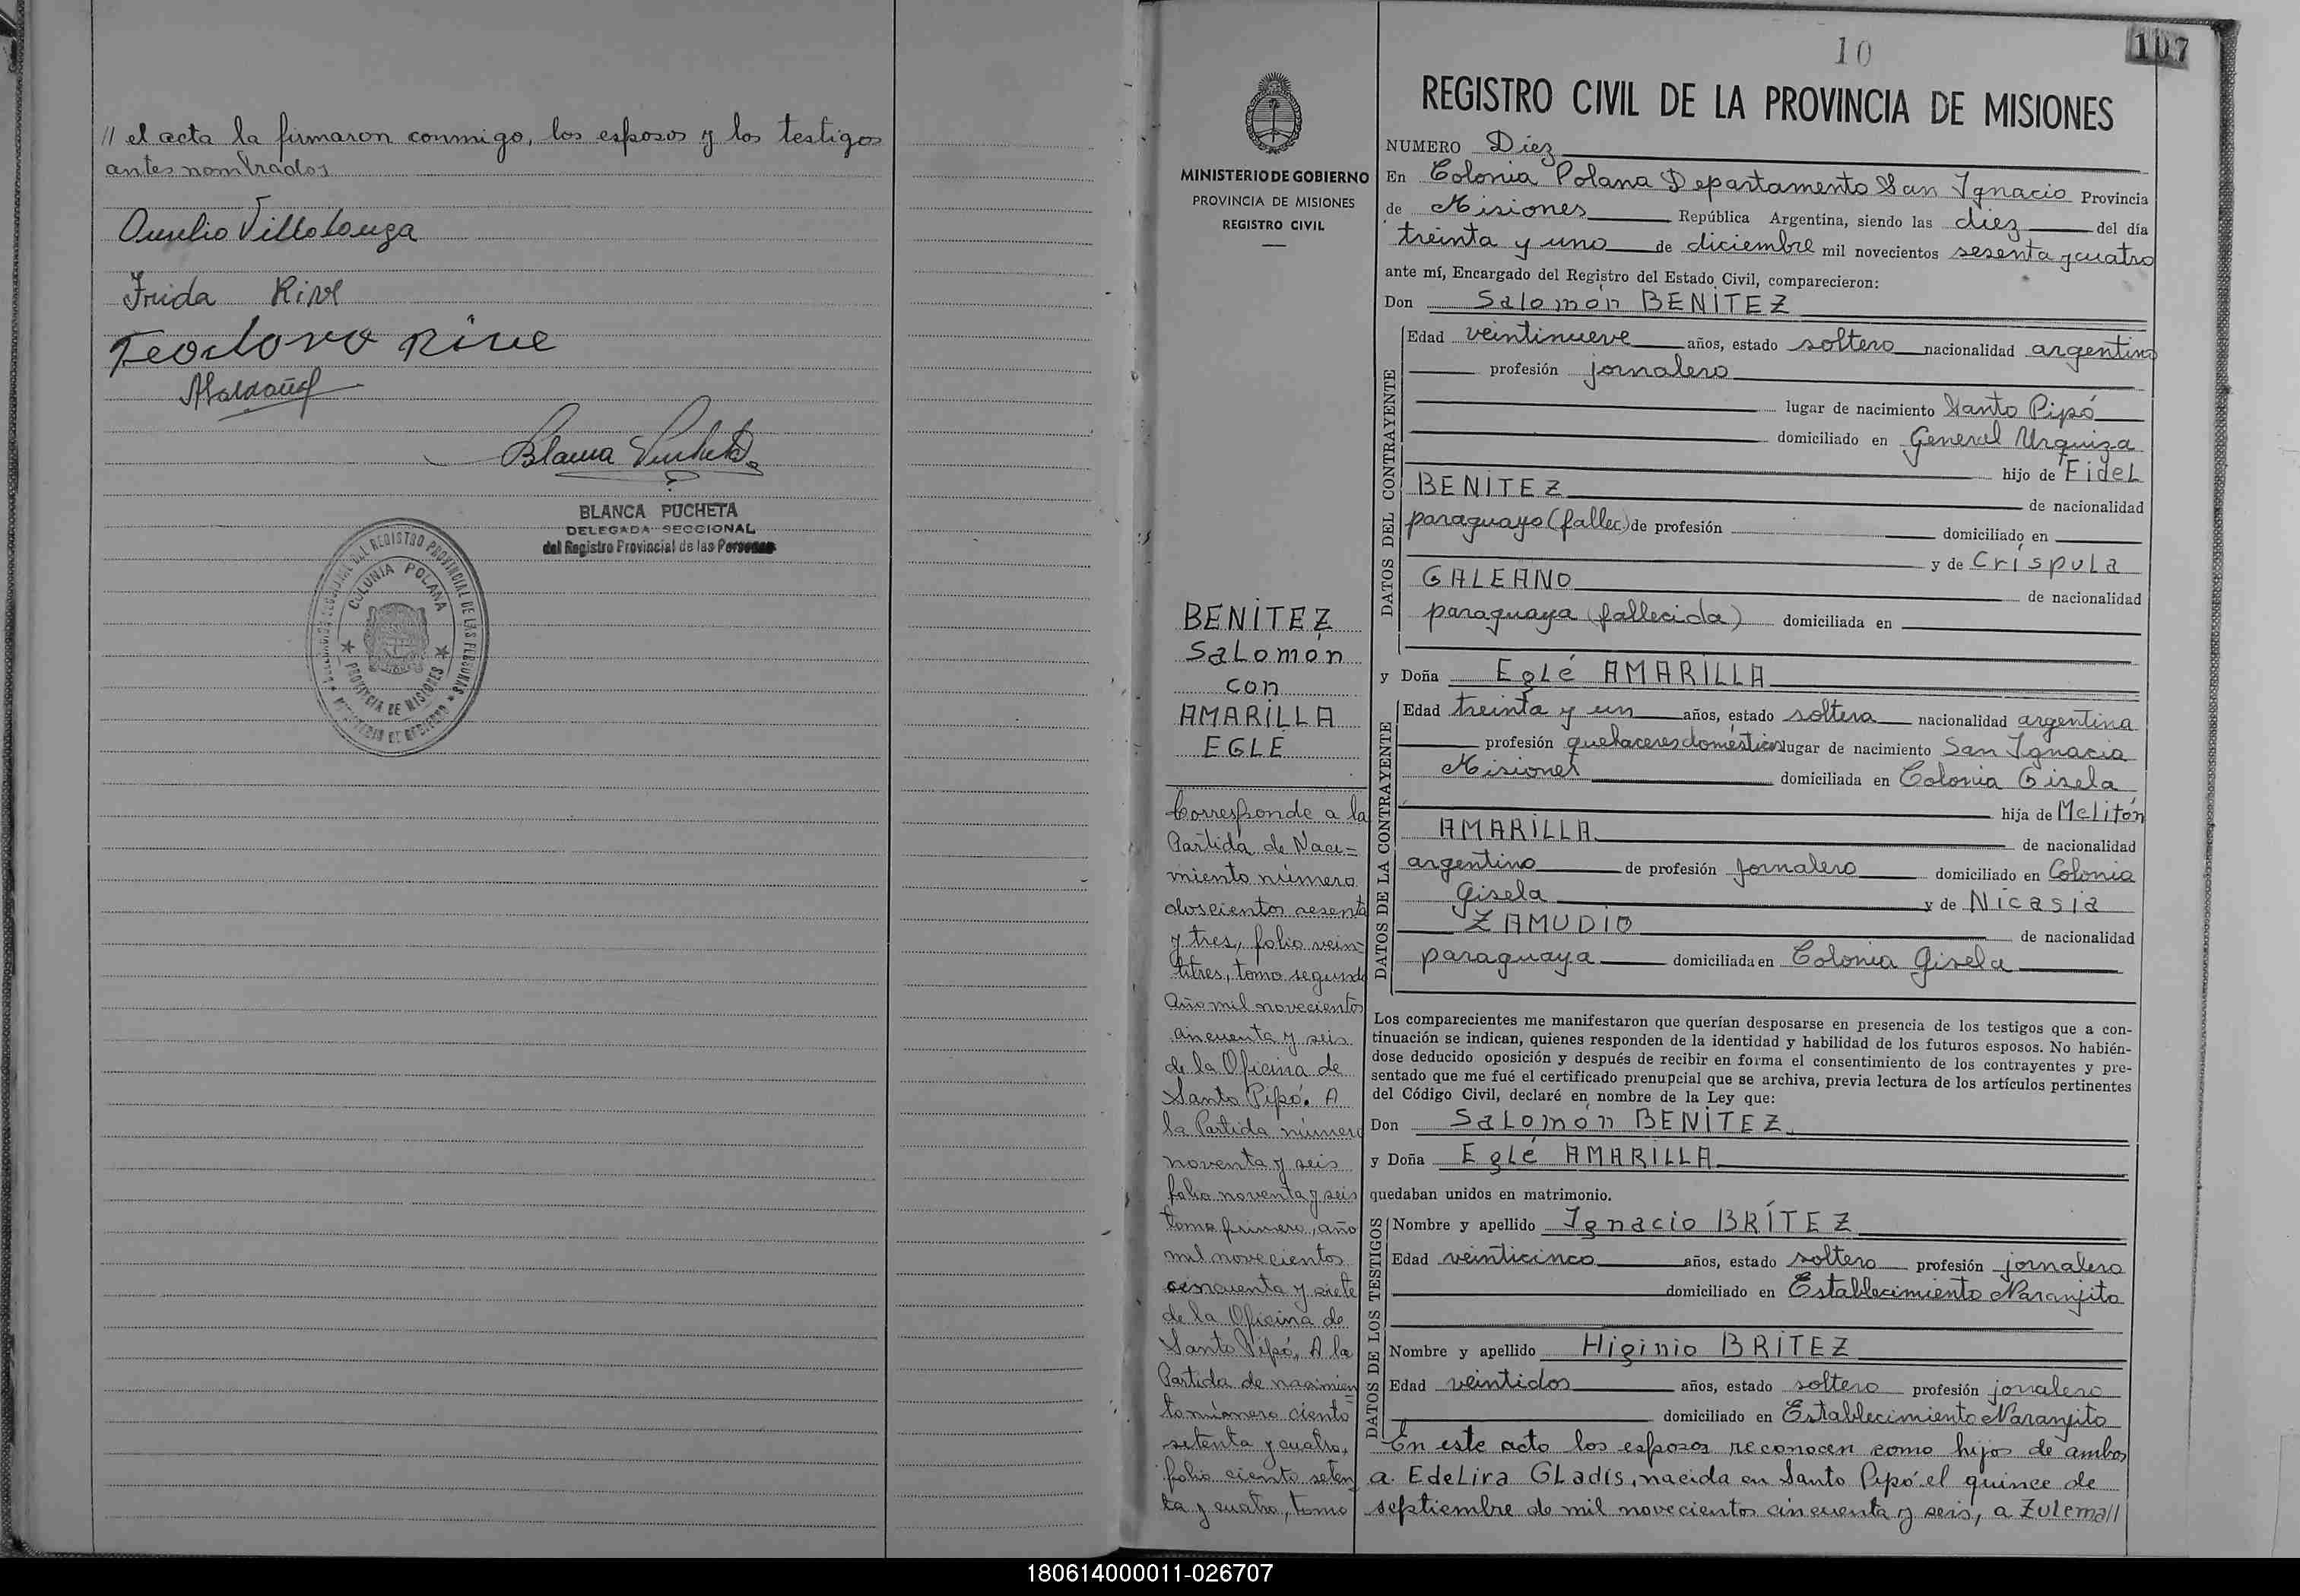 // el acta la firmaron conmigo, los esposos y los testigos
antes nombrados
Aurelio Villalonga
Frida Rive
Teodoro Rive
BLANCA PUCHETA
DELEGADA SECCIONAL
del Registro Provincial de las Personas
COLONIA POLANA
PROVINCIA DE MISIONES
10
107
MINISTERIO DE GOBIERNO
PROVINCIA DE MISIONES
REGISTRO CIVIL
BENÍTEZ
Salomón
con
AMARILLA
EGLÉ
Corresponde a la
Partida de Naci=
miento número
doscientos sesenta
y tres, folio vein=
titres, tomo segundo
Año mil novecientos
cincuenta y seis
de la Oficina de
Santo Pipó. A
la Partida número
noventa y seis
folio noventa y seis
tomo primero, año
mil novecientos
cincuenta y siete
de la Oficina de
Santo Pipó. A la
Partida de nacimien
to número ciento
setenta y cuatro,
folio ciento seten
ta y cuatro, tomo
REGISTRO CIVIL DE LA PROVINCIA DE MISIONES
NUMERO Diez
En Colonia Polana Departamento San Ignacio Provincia
de Misiones República Argentina, siendo las diez del día
treinta y uno de diciembre mil novecientos sesenta y cuatro
ante mí, Encargado del Registro del Estado Civil, comparecieron:
Don Salomón BENÍTEZ
DATOS DEL CONTRAYENTE
Edad veintinueve años, estado soltero nacionalidad argentino
profesión jornalero
lugar de nacimiento Santo Pipó
domiciliado en General Urquiza
hijo de Fidel
BENÍTEZ de nacionalidad
paraguayo (fallec.) de profesión domiciliado en
y de Críspula
GALEANO de nacionalidad
paraguaya (fallecida) domiciliada en
y Doña Eglé AMARILLA
DATOS DE LA CONTRAYENTE
Edad treinta y un años, estado soltera nacionalidad argentina
profesión quehaceres domésticos lugar de nacimiento San Ignacio
Misiones domiciliada en Colonia Gisela
hija de Melitón
AMARILLA de nacionalidad
argentino de profesión Jornalero domiciliado en Colonia
Gisela y de Nicasia
ZAMUDIO de nacionalidad
paraguaya domiciliada en Colonia Gisela
Los comparecientes me manifestaron que querían desposarse en presencia de los testigos que a con-
tinuación se indican, quienes responden de la identidad y habilidad de los futuros esposos. No habién-
dose deducido oposición y después de recibir en forma el consentimiento de los contrayentes y pre-
sentado que me fué el certificado prenupcial que se archiva, previa lectura de los artículos pertinentes
del Código Civil, declaré en nombre de la Ley que:
Don Salomón BENÍTEZ
y Doña Eglé AMARILLA
quedaban unidos en matrimonio.
DATOS DE LOS TESTIGOS
Nombre y apellido Ignacio BRÍTEZ
Edad veinticinco años, estado soltero profesión jornalero
domiciliado en Establecimiento Naranjito
Nombre y apellido Higinio BRÍTEZ
Edad veintidos años, estado soltero profesión jornalero
domiciliado en Establecimiento Naranjito
En este acto los esposos reconocen como hijos de ambos
a Edelira Gladis, nacida en Santo Pipó el quince de
septiembre de mil novecientos cincuenta y seis, a Zulema//
180614000011-026707